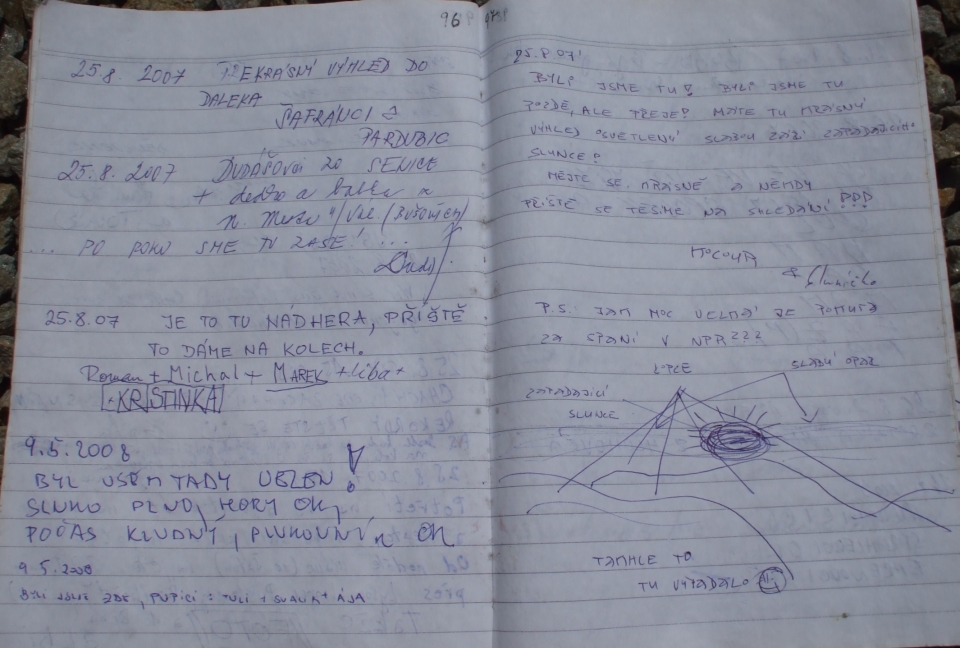 25.8. 2007 PŘEKRÁSNÝ VÝHLED DO
DALEKA
ŠAFRÁNCI Z
PARDUBIC
25.8. 2007 DUDÁŠOVCI ZO SENICE
+ dedko a babka
... PO ROKU SME TU ZASE! ...
25.8.07 JE TO TU NÁDHERA, PŘIŠTĚ
TO DÁME NA KOLECH.
Roman + Michal + MAREK + liba +
KRISTINKA
9.5.2008
BYL USEM TADY
PLNO, HORY OK,
POČAS KLUDNÝ, OK
9.5.2008
BYLI JSME ZDE, PUPÍCI: TULI + + AJA
25.8.07
BYLI JSME TU! BYLI JSME TU
POZDĚ, ALE PŘEJE! MÁTE TU KRÁSNÝ
VÝHLED OSVĚTLENÝ SLABOU ZÁŘÍ ZAPADAJÍCÍHO
SLUNCE!
MĚJTE SE KRÁSNĚ A NĚKDY
PŘÍŠTĚ SE TĚŠÍME NA SHLEDÁNÍ!!!
KOCOUR
& Sluníčko
P.S. JAK MOC VELKÁ JE POKUTA
ZA SPANÍ V NPR???
KOPCE
SLABÝ OPAR
ZAPADAJÍCÍ
SLUNCE
TAKHLE TO
TU VYPADALO